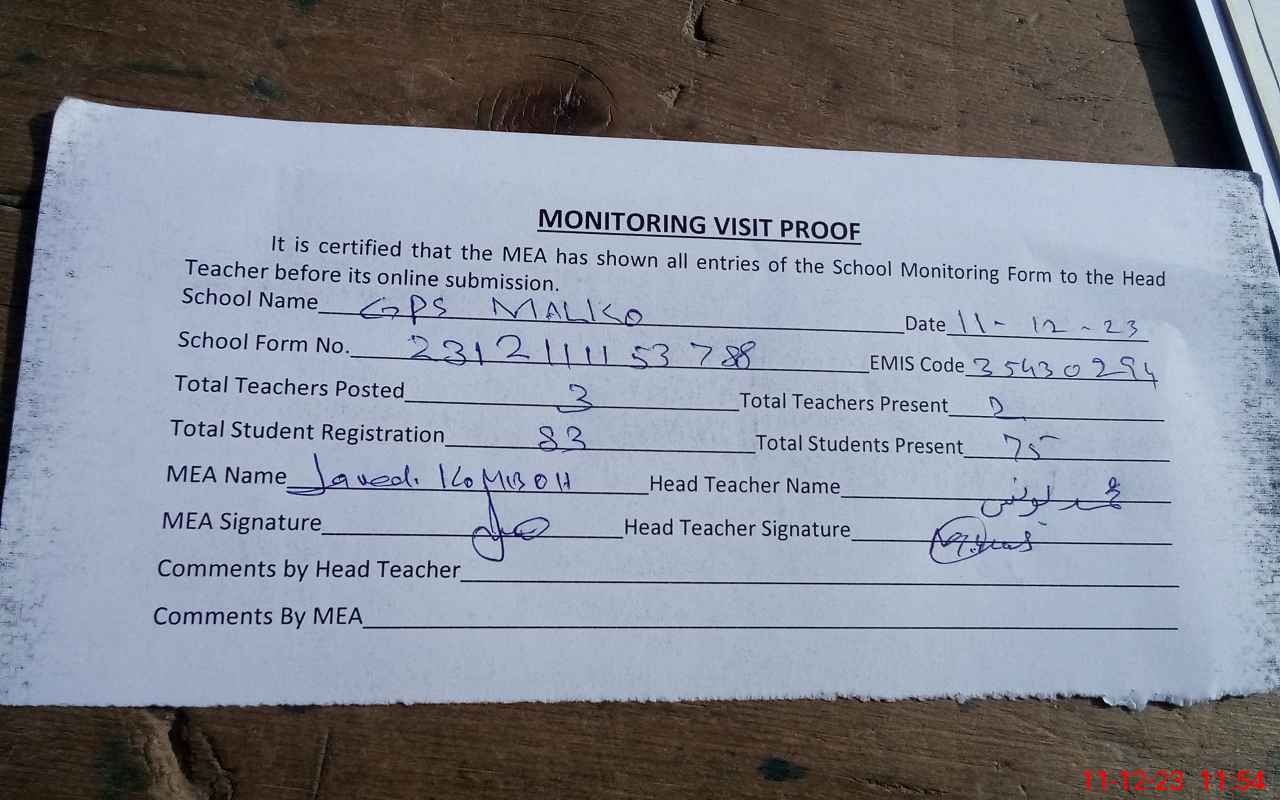 MONITORING VISIT PROOF
It is certified that the MEA has shown all entries of the School Monitoring Form to the Head
Teacher before its online submission.
School Name GPS MALKO Date 11-12-23
School Form No. 231211115 3788 EMIS Code 35430294
Total Teachers Posted 3 Total Teachers Present 2
Total Student Registration 83 Total Students Present 75
MEA Name Javed. KOMBOH Head Teacher Name محمد یونس
MEA Signature Head Teacher Signature M.Younas
Comments by Head Teacher
Comments By MEA
11-12-23 11:54